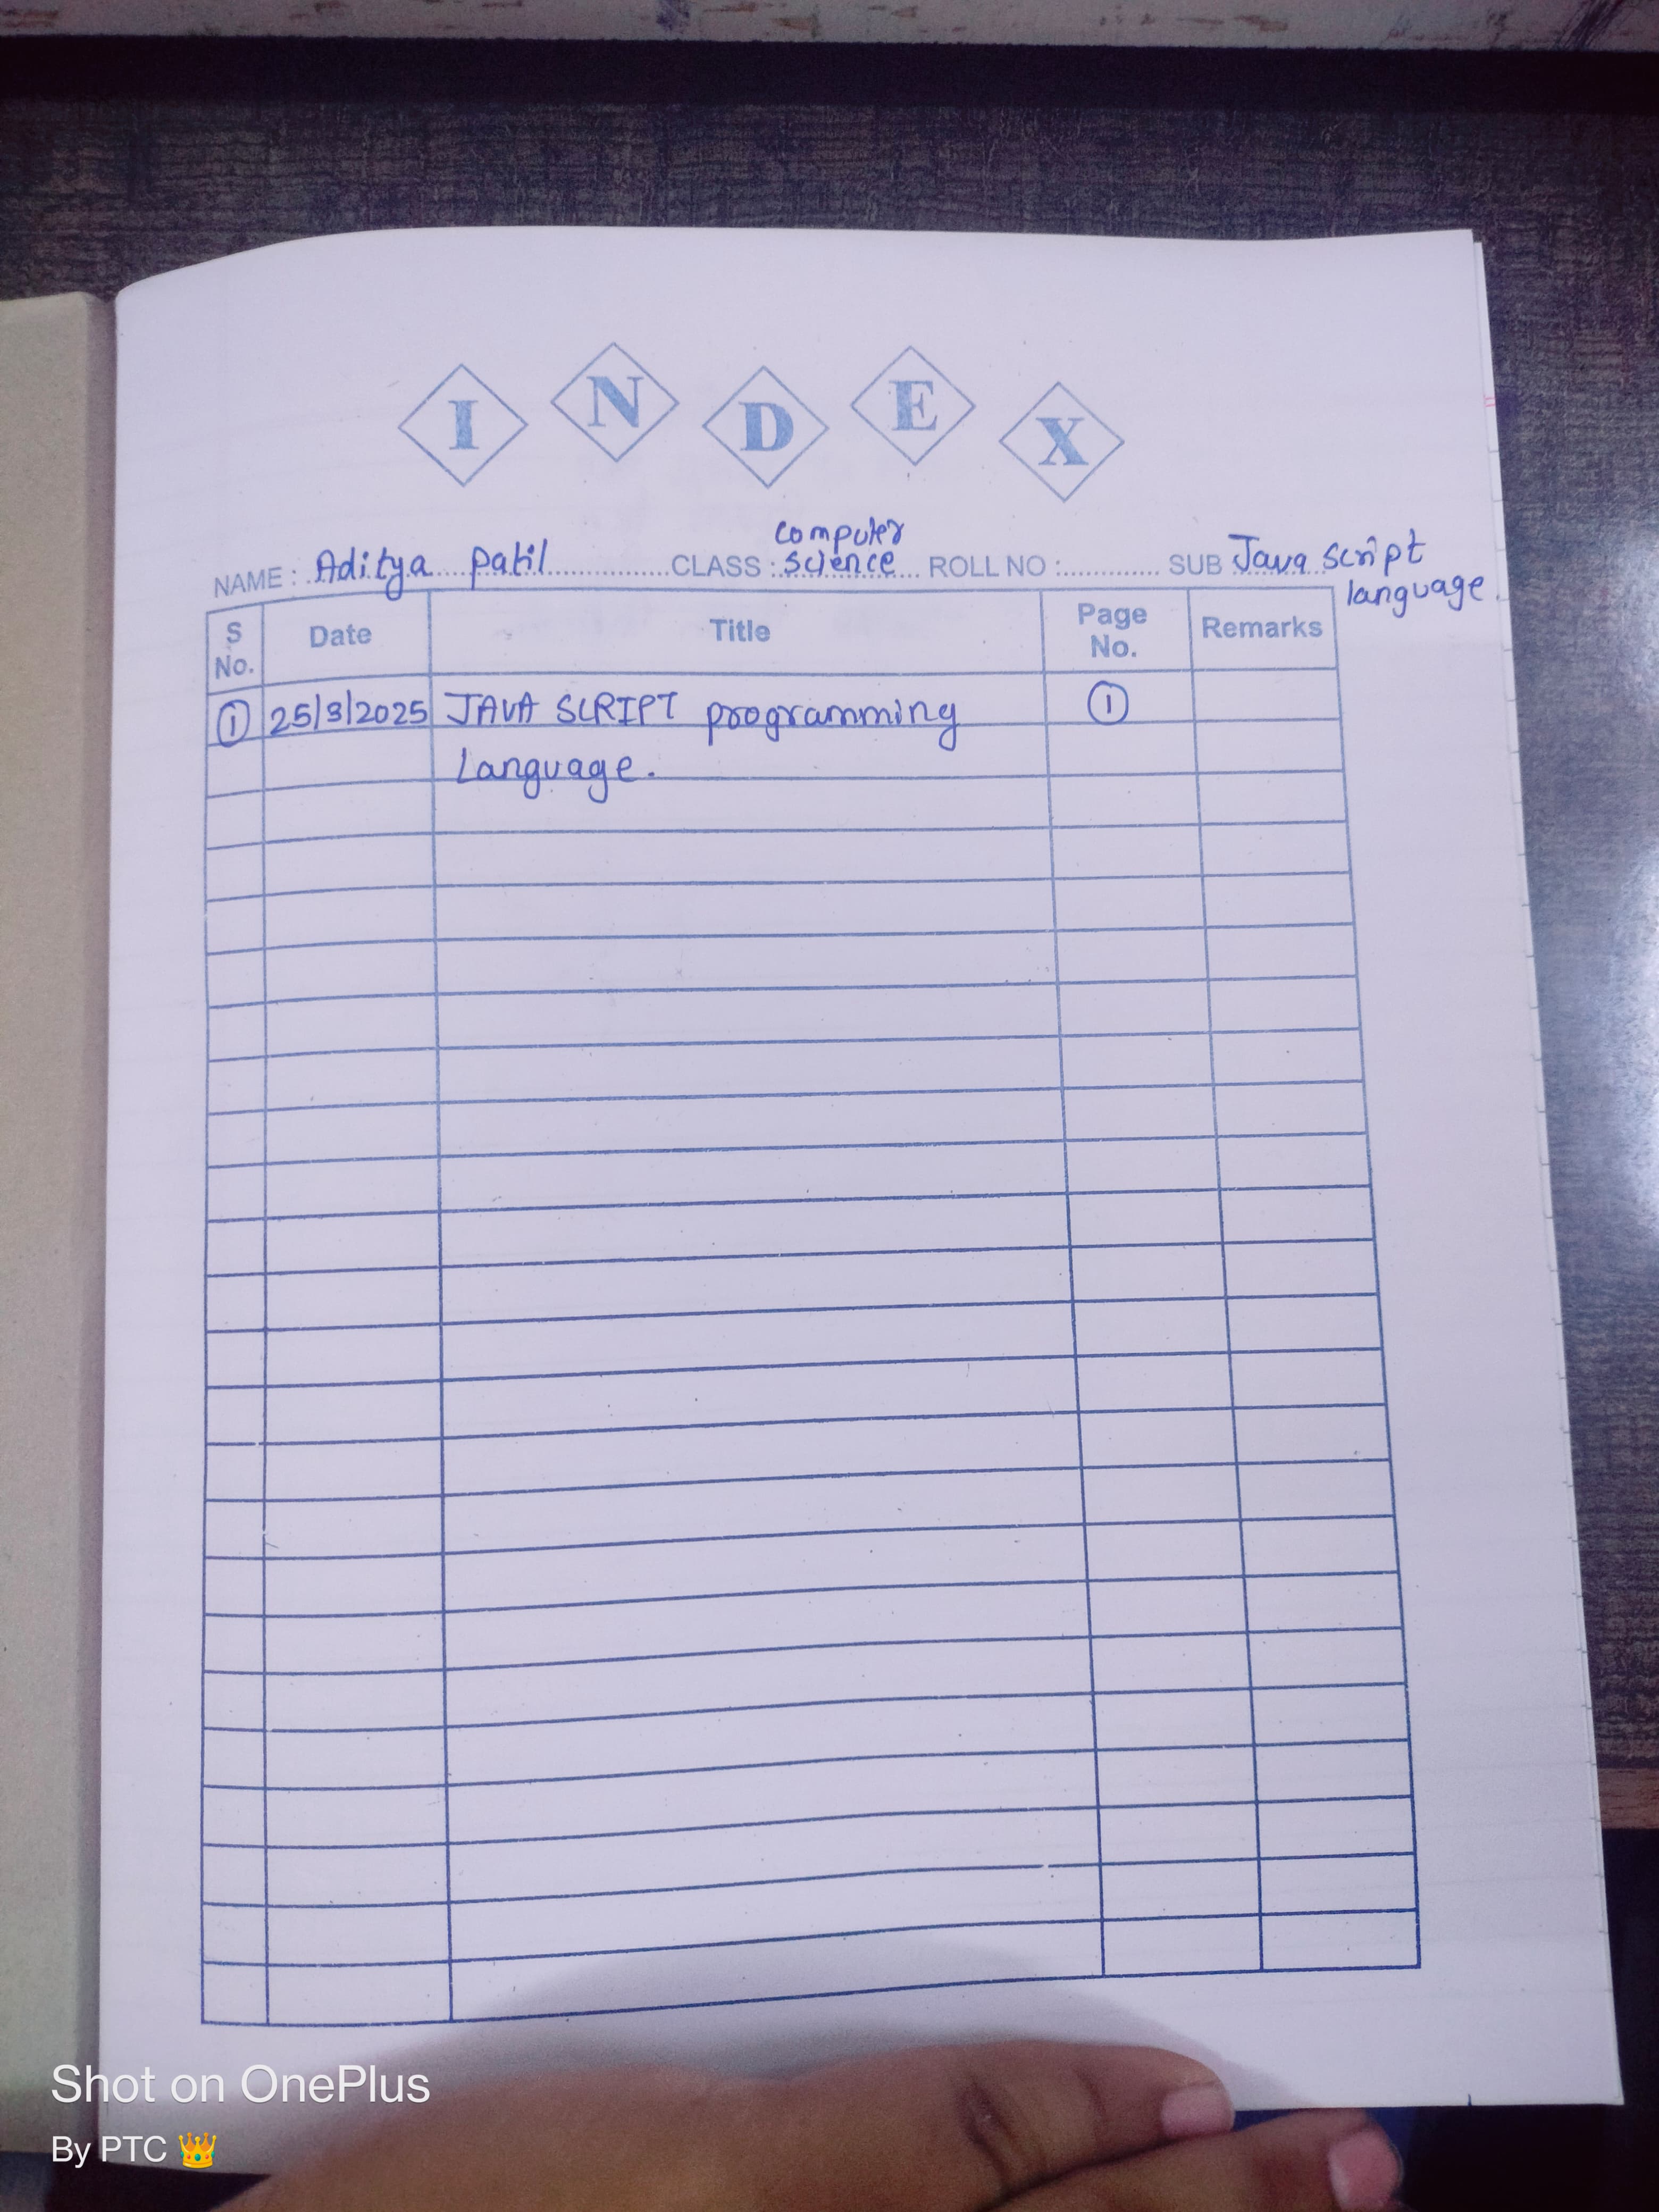 I N D E X
NAME : Aditya Patil CLASS : Computer Science ROLL NO : SUB Java Script language.
S No. Date Title Page No. Remarks
① 25/3/2025 JAVA SCRIPT programming ①
Language.
Shot on OnePlus
By PTC 👑